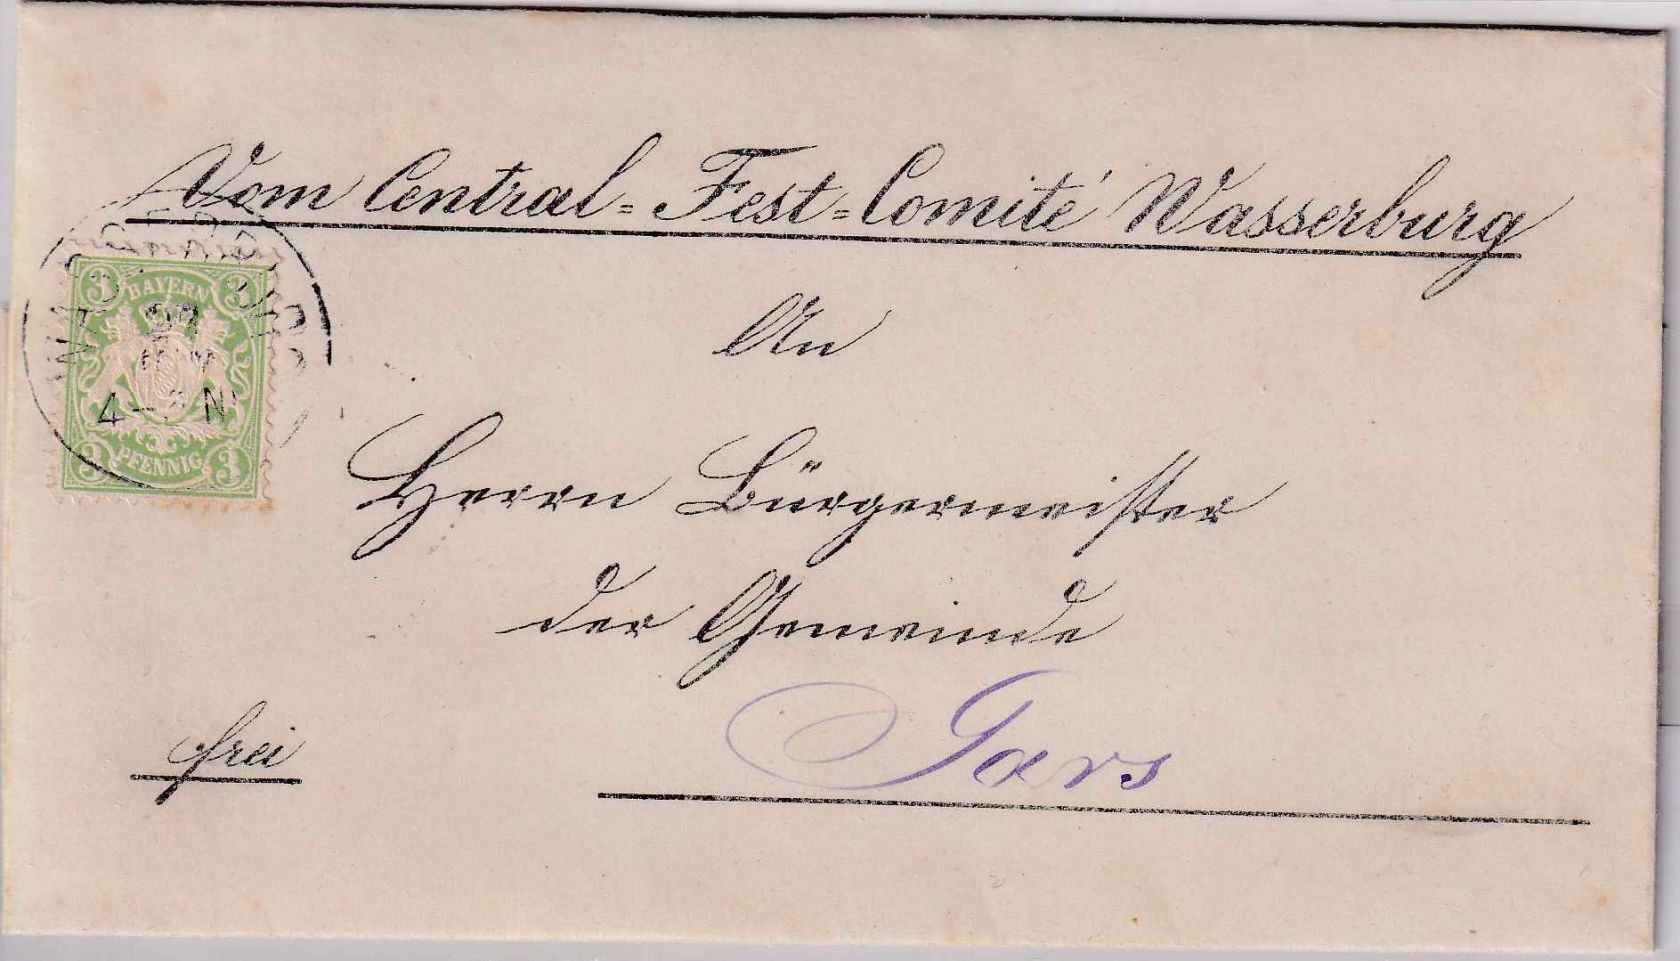 Vom Central-Fest-Comité Wasserburg
WASSERBURG
3 3
BAYERN
4–
N
PFENNIG
3 3
An
Herrn Bürgermeister
der Gemeinde
Gars
frei